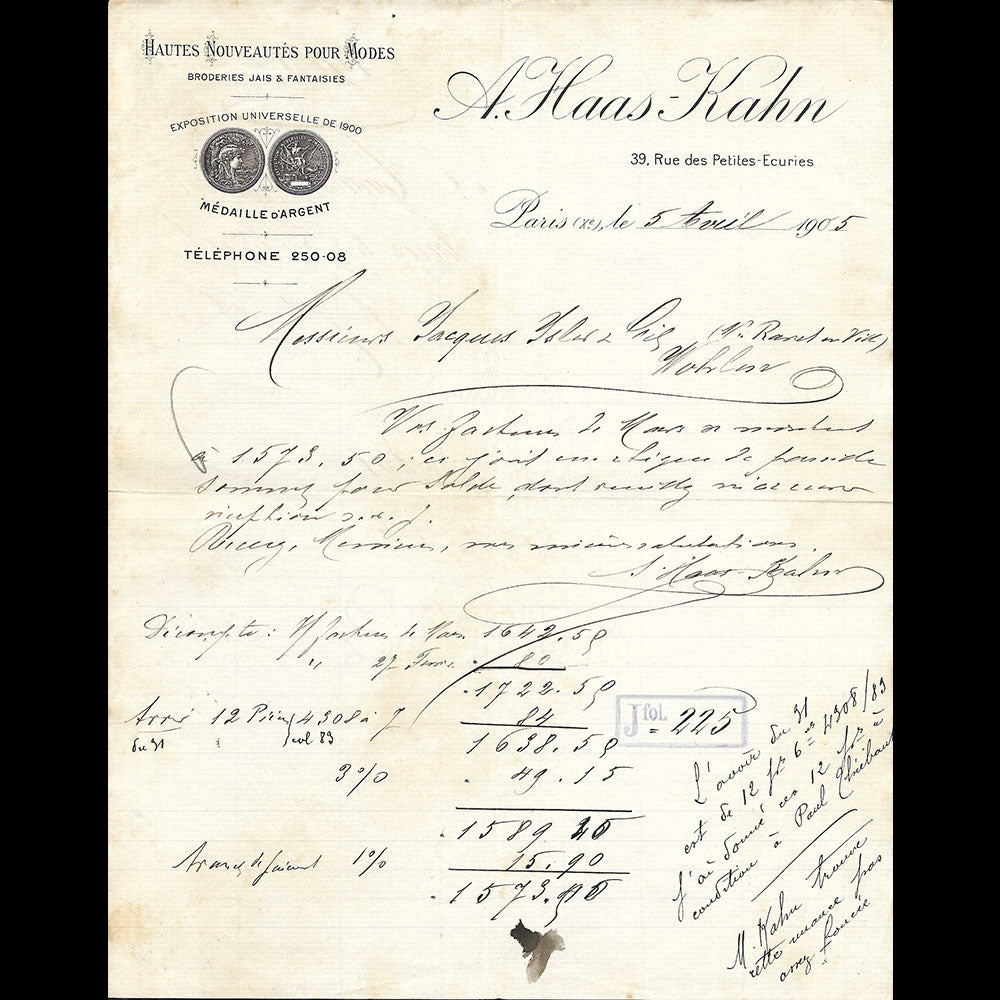 HAUTES NOUVEAUTÉS POUR MODES
BRODERIES JAIS & FANTAISIES
EXPOSITION UNIVERSELLE DE 1900
MÉDAILLE D'ARGENT
TÉLÉPHONE 250-08
A. Haas-Kahn
39, Rue des Petites-Ecuries
Paris (Xe), le 5 Avril 1905
Messieurs Jacques Isler & Cie
Wohlen
Vos factures de Mars se montent
à 1573.50 ; ci joint un chèque de pareille
somme pour solde, dont veuillez m'accuser
réception
Recevez, Messieurs, mes sincères salutations.
A. Haas-Kahn
Décompte : V/ factures de Mars 1642.50
" 27 80
1722.50
12 Pièces 4308 à 7 84
du 31 col 83
1638.50
3% 49.15
1589
1% 15.90
1573.
J fol. = 225
L'avoir du 31
est de 12 4308/83
j'ai donné ces 12 à
condition à Paul Thiébaut
M. Kahn trouve
cette nuance pas
assez foncée